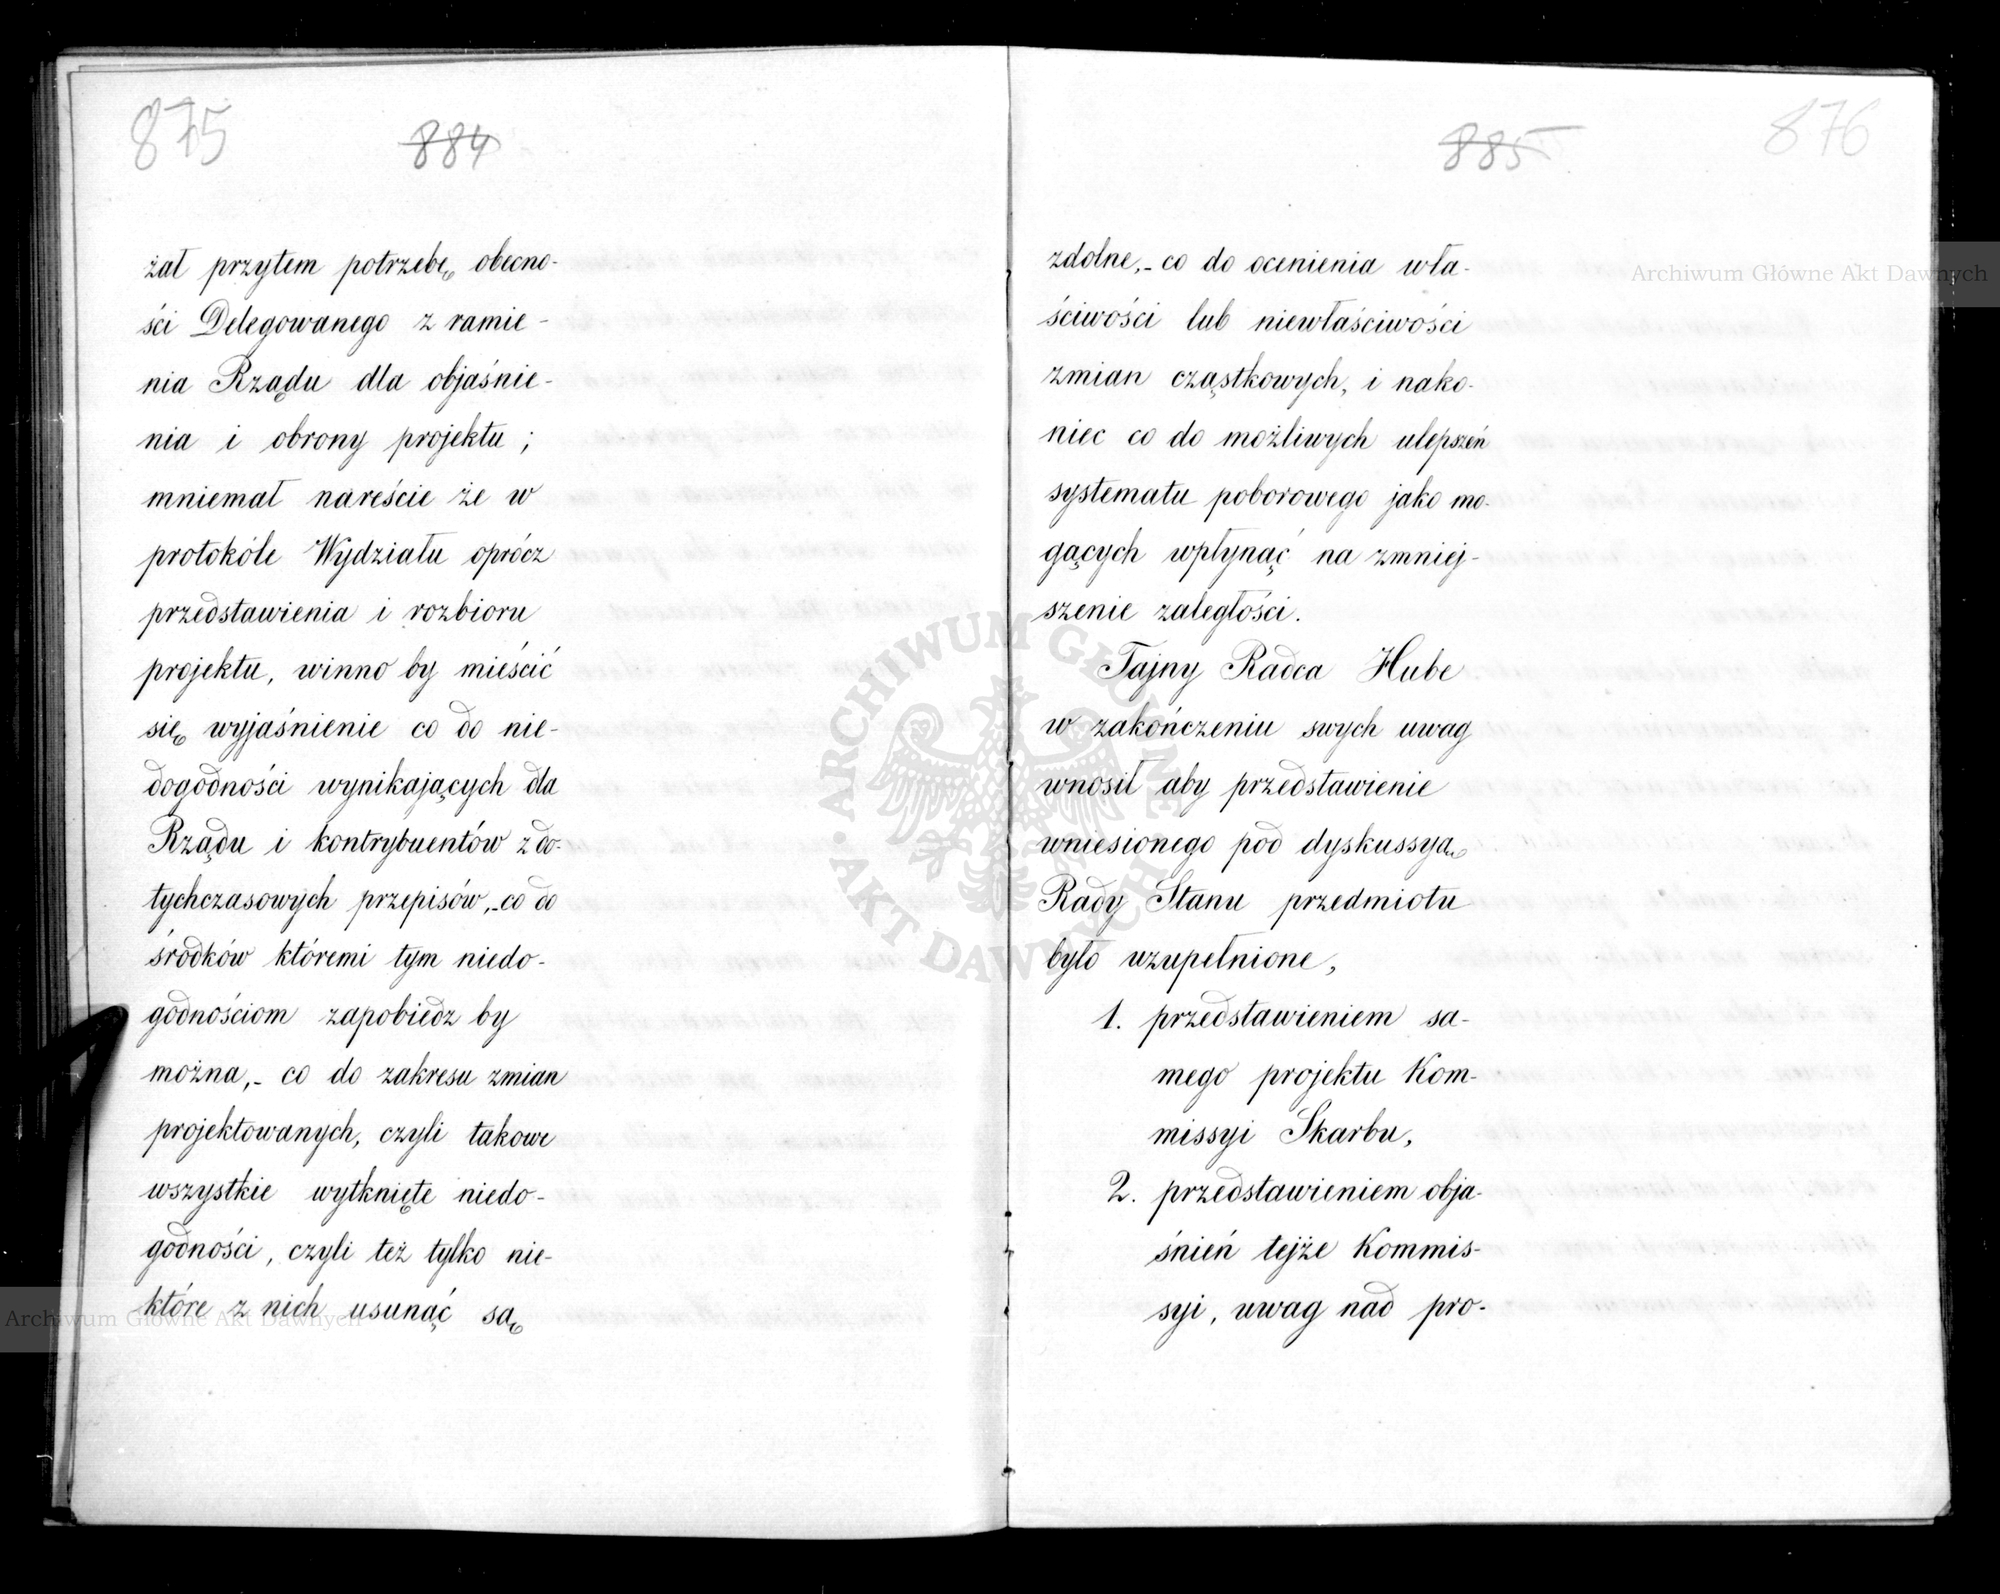 875
884
żał przytem potrzebę obecno-
ści Delegowanego z ramie-
nia Rządu dla objaśnie-
nia i obrony projektu;
mniemał nareście że w
protokóle Wydziału oprócz
przedstawienia i rozbioru
projektu, winno by mieścić
się wyjaśnienie co do nie-
dogodności wynikających dla
Rządu i kontrybuentów z do-
tychczasowych przepisów,- co do
środków któremi tym niedo-
godnościom zapobiedz by
można,- co do zakresu zmian
projektowanych, czyli takowe
wszystkie wytknięte niedo-
godności, czyli też tylko nie-
które z nich usunąć są
885
876
zdolne,- co do ocenienia wła-
ściwości lub niewłaściwości
zmian cząstkowych, i nako-
niec co do możliwych ulepszeń
systematu poborowego jako mo-
gących wpłynąć na zmniej-
szenie zaległości.
Tajny Radca Hube
w zakończeniu swych uwag
wnosił aby przedstawienie
wniesionego pod dyskussyą
Rady Stanu przedmiotu
było uzupełnione,
1. przedstawieniem sa-
mego projektu Kom-
missyi Skarbu,
2. przedstawieniem obja-
śnień tejże Kommis-
syi, uwag nad pro-
Archiwum Główne Akt Dawnych
Archiwum Główne Akt Dawnych
ARCHIWUM GŁÓWNE AKT DAWNYCH